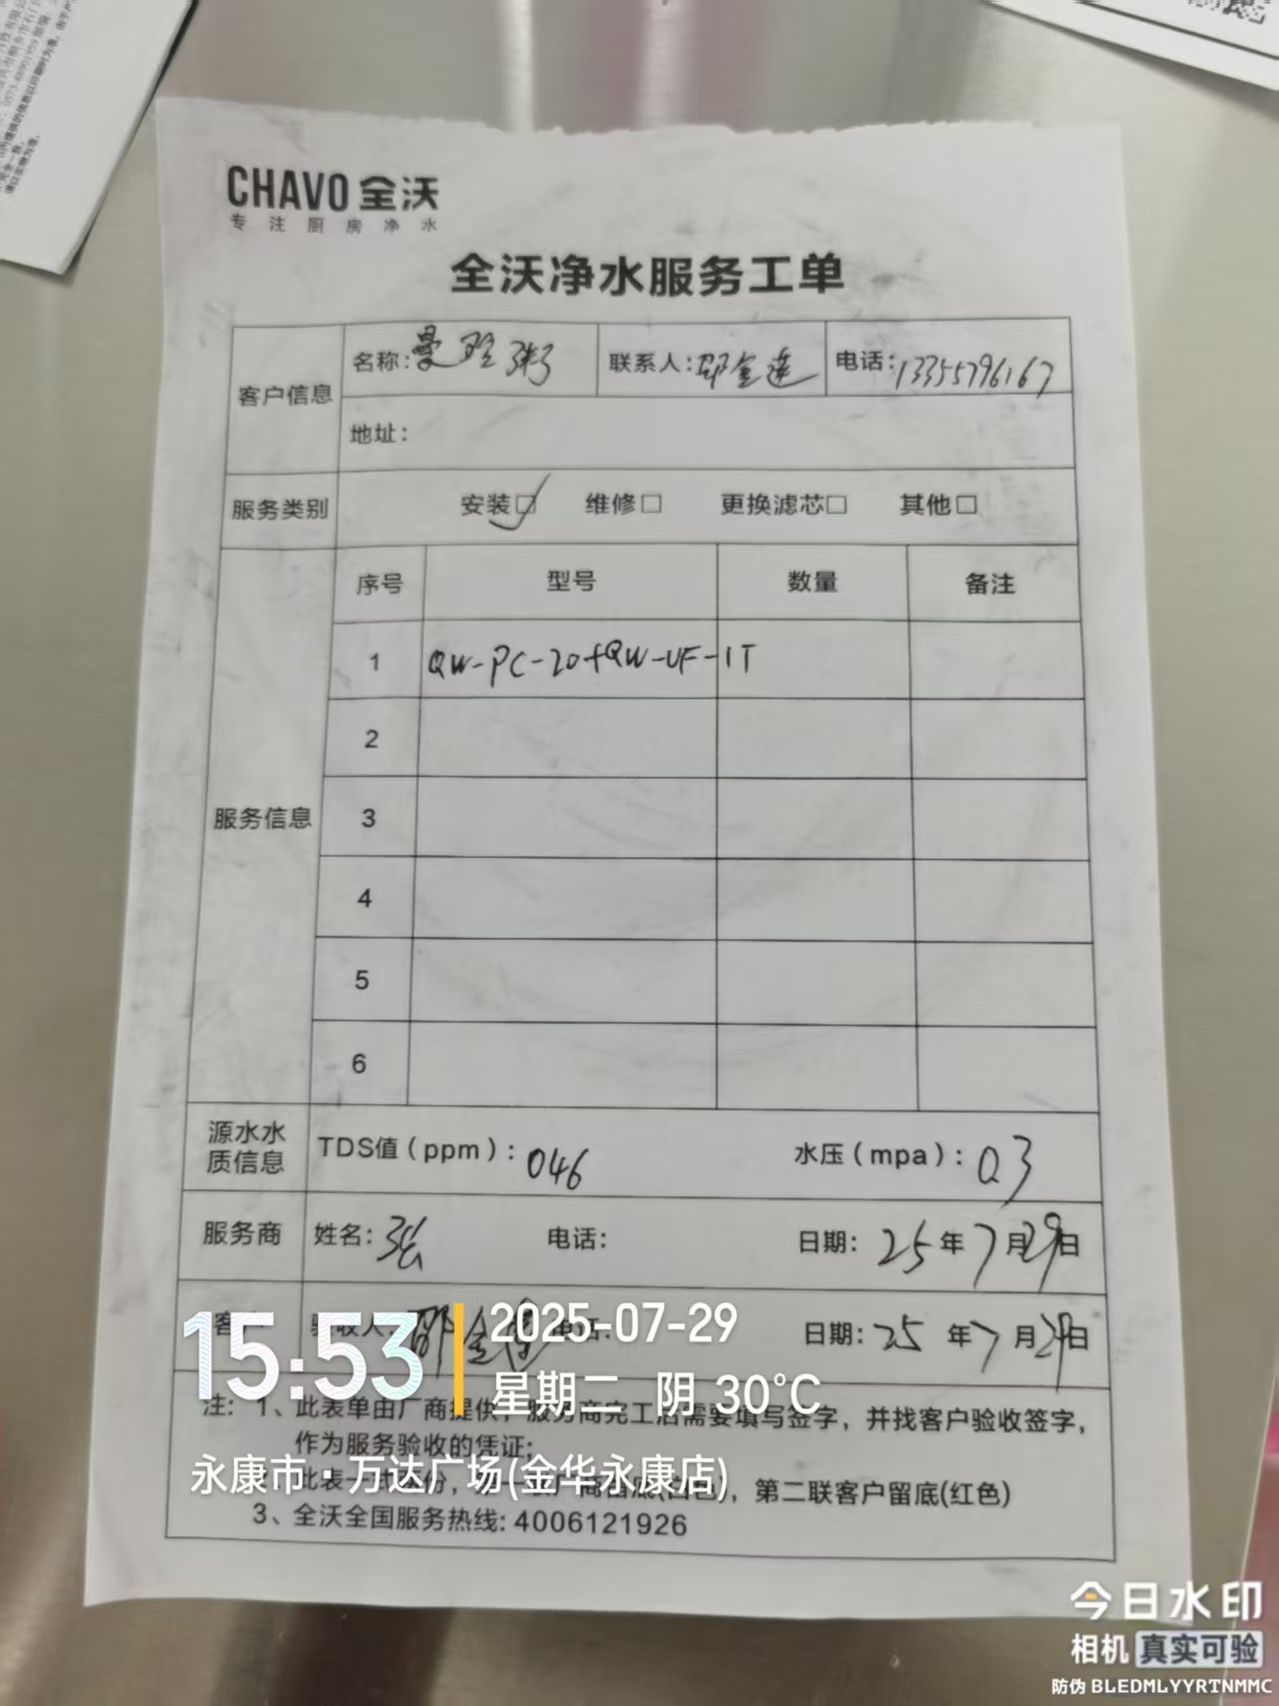 CHAVO 全沃
专注厨房净水
全沃净水服务工单
客户信息
名称:曼玲粥
联系人:邵金莲
电话:13355796167
地址:
服务类别
安装☑ 维修□ 更换滤芯□ 其他□
服务信息
序号 型号 数量 备注
1 QW-PC-20+QW-UF-1T
2
3
4
5
6
源水水质信息
TDS值(ppm):046 水压(mpa):0.3
服务商 姓名:张 电话: 日期:25年7月29日
验收人: 电话: 日期:25年7月29日
注:1、此表单由厂商提供,服务商完工后需要填写签字,并找客户验收签字,
作为服务验收的凭证;
此表一式 份, 厂商留底(白色),第二联客户留底(红色)
3、全沃全国服务热线:4006121926
15:53
2025-07-29
星期二 阴 30°C
永康市·万达广场(金华永康店)
今日水印
相机 真实可验
防伪 BLEDMLYYRTNMMC